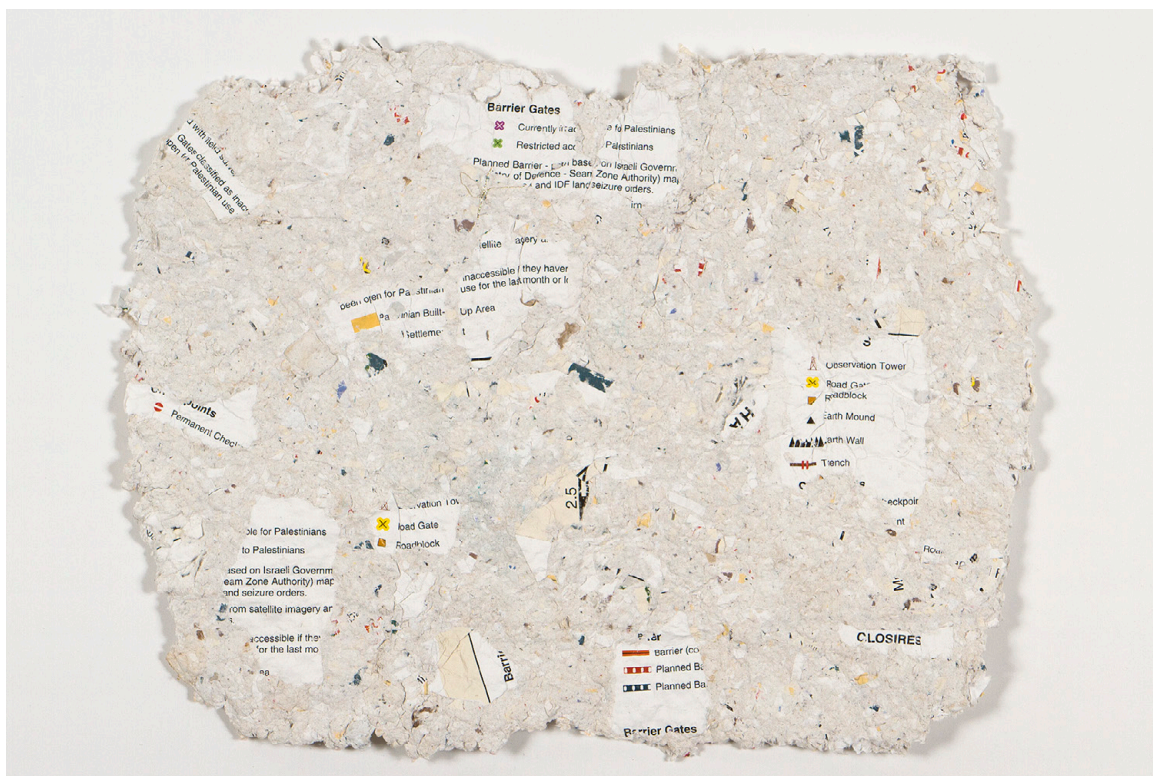 Barrier Gates
Currently
to Palestinians
Restricted
Palestinians
Planned Barrier - based on Israeli Governm
of Defence - Seam Zone Authority) map
and IDF land seizure orders.
Gates classified as inacc
open for Palestinian use
inaccessible if they haven
use for the last month or
been open for Palestinian
Built-Up Area
Observation Tower
Road Gate
Roadblock
Earth Mound
Earth Wall
Trench
Permanent Chec
HA
2.5
Road Gate
Roadblock
for Palestinians
to Palestinians
ased on Israeli Governm
eam Zone Authority) map
and seizure orders.
from satellite imagery
accessible if they
for the last mo
ea
nt
M
CLOSIRES
Barri
Barrier (co
Planned Ba
Planned Ba
Barrier Gates